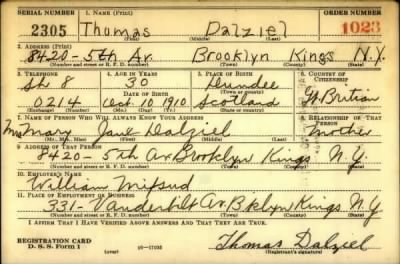 SERIAL NUMBER 1. NAME (Print) ORDER NUMBER
2305 Thomas Dalziel 1023
(First) (Middle) (Last)
2. ADDRESS (Print)
8420-5th Av. Brooklyn Kings N.Y.
(Number and street or R. F. D. number) (Town) (County) (State)
3. TELEPHONE 4. AGE IN YEARS 5. PLACE OF BIRTH 6. COUNTRY OF CITIZENSHIP
Sh 8 30 Dundee
DATE OF BIRTH (Town or county)
0214 Oct. 10 1910 Scotland Gt. Britian
(Mo.) (Day) (Yr.) (State or country)
7. NAME OF PERSON WHO WILL ALWAYS KNOW YOUR ADDRESS 8. RELATIONSHIP OF THAT PERSON
Mrs Mary Jane Dalziel Mother
(Mr., Mrs., Miss) (First) (Middle) (Last)
9. ADDRESS OF THAT PERSON
8420-5th Av. Brooklyn Kings N.Y.
(Number and street or R. F. D. number) (Town) (County) (State)
10. EMPLOYER'S NAME
William Mifsud
11. PLACE OF EMPLOYMENT OR BUSINESS
331-Vanderbilt Av. Bklyn Kings N.Y
(Number and street or R. F. D. number) (Town) (County) (State)
I AFFIRM THAT I HAVE VERIFIED ABOVE ANSWERS AND THAT THEY ARE TRUE.
REGISTRATION CARD
D. S. S. Form 1 16-17105 Thomas Dalziel
(Registrant's signature)